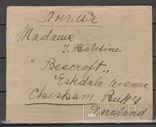 Англія
Madame
J. Bolotine
"Bescroft",
Eskdale Avenue
Chesham Bucks
England